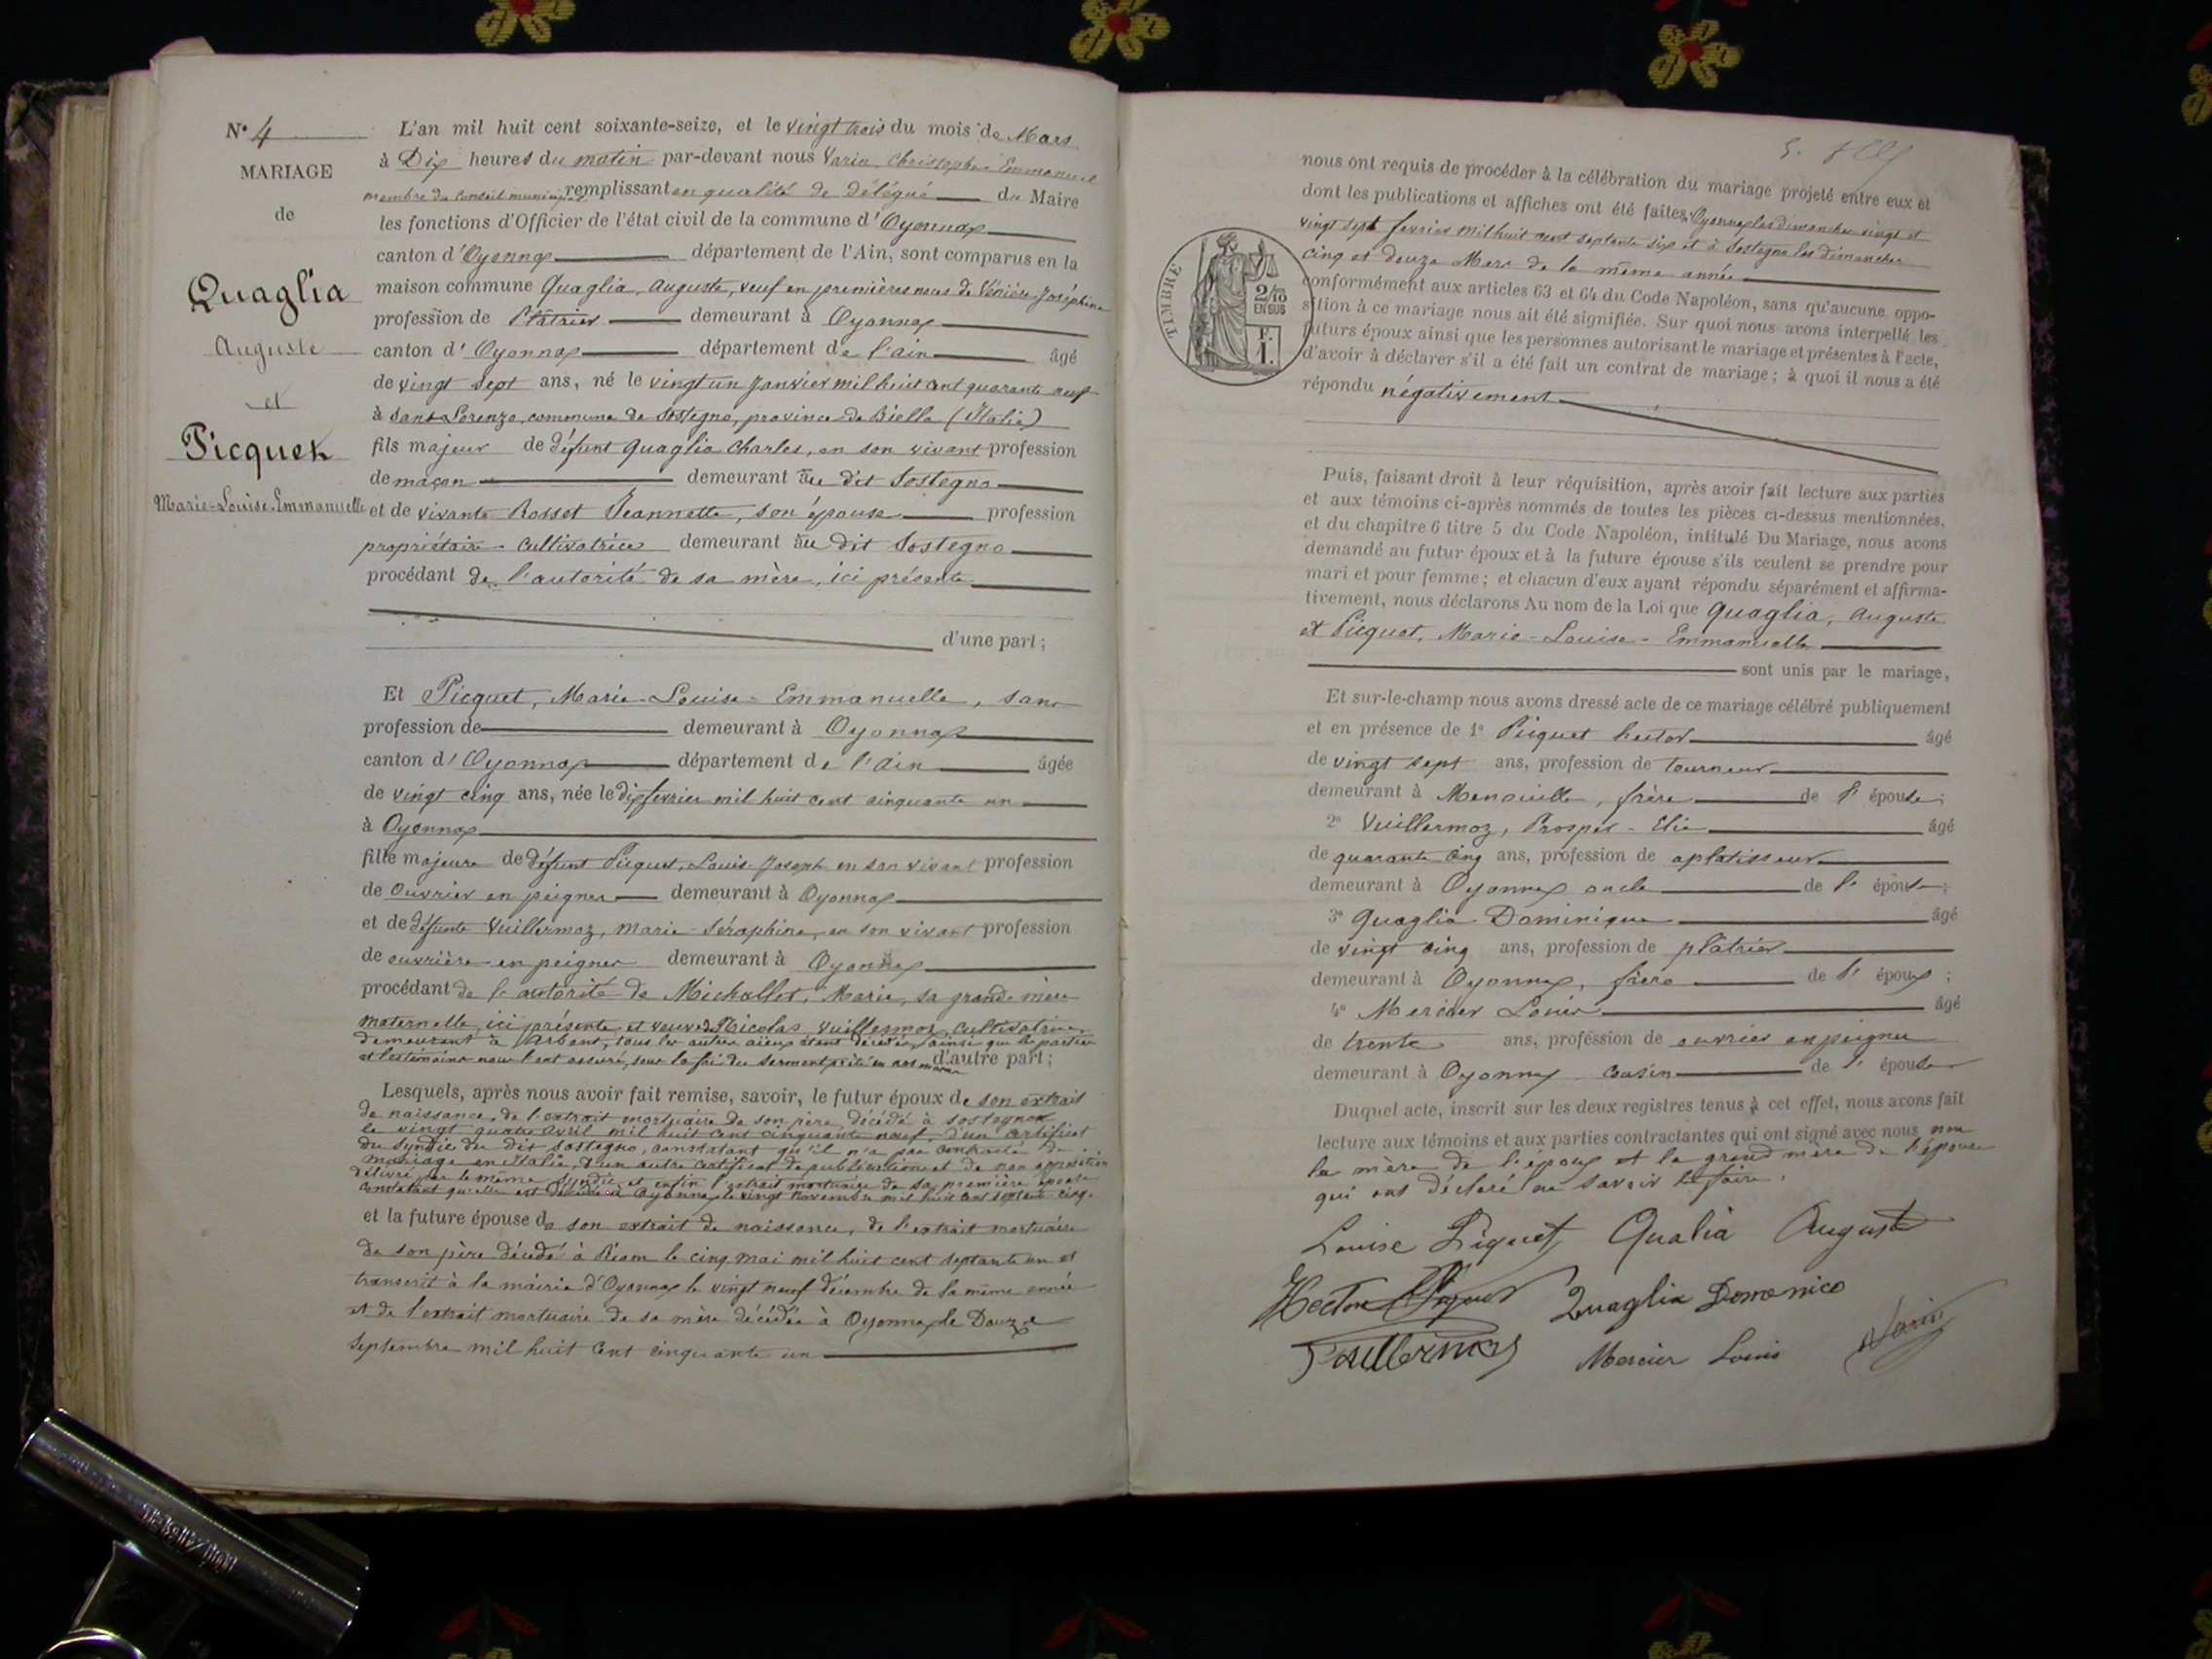 N° 4
MARIAGE
de
Quaglia
Auguste
et
Picquet
Marie-Louise-Emmanuelle
L'an mil huit cent soixante-seize, et le vingt trois du mois de Mars
à Dix heures du matin par-devant nous Varin Christophe Emmanuel
membre du Conseil municipal remplissant en qualité de délégué du Maire
les fonctions d'Officier de l'état civil de la commune d'Oyonnax
canton d'Oyonnax département de l'Ain, sont comparus en la
maison commune Quaglia, Auguste, veuf en premières noces de Joséphine
profession de Plâtrier demeurant à Oyonnax
canton d'Oyonnax département de l'ain âgé
de vingt sept ans, né le vingt un Janvier mil huit cent quarante neuf
à Sant Lorenzo, commune de Sostegno, province de Biella (Italie)
fils majeur de défunt Quaglia Charles, en son vivant profession
de maçon demeurant au dit Sostegno
et de vivante Rosset Jeannette, son épouse profession
propriétaire-cultivatrice demeurant au dit Sostegno
procédant de l'autorité de sa mère, ici présente
d'une part;
Et Picquet, Marie-Louise-Emmanuelle, sans
profession de demeurant à Oyonnax
canton d'Oyonnax département de l'ain âgée
de vingt cinq ans, née le dix février mil huit cent cinquante un
à Oyonnax
fille majeure de défunt Picquet, Louis Joseph en son vivant profession
de ouvrier en peignes demeurant à Oyonnax
et de défunte Vuillermoz, Marie-Séraphine, en son vivant profession
de ouvrière en peignes demeurant à Oyonnax
procédant de l'autorité de Michallet, Marie, sa grande mère
maternelle, ici présente, et veuve de Nicolas Vuillermoz, cultivatrice
demeurant à Arbent, tous les autres aïeux étant décédés, ainsi que les parties
et les témoins nous l'ont assuré, sous la foi du serment prêté en nos mains d'autre part;
Lesquels, après nous avoir fait remise, savoir, le futur époux de son extrait
de naissance, de l'extrait mortuaire de son père décédé à Sostegno
le vingt quatre avril mil huit cent cinquante neuf, d'un certificat
du Syndic du dit Sostegno, constatant qu'il n'a pas contracté de
mariage en Italie, d'un autre certificat de publication et de non opposition
délivré par le même Syndic, et enfin l'extrait mortuaire de sa première épouse
constatant qu'elle est décédée à Oyonnax le vingt novembre mil huit cent septante cinq.
et la future épouse de son extrait de naissance, de l'extrait mortuaire
de son père décédé à Riom le cinq mai mil huit cent septante un et
transcrit à la mairie d'Oyonnax le vingt neuf décembre de la même année
et de l'extrait mortuaire de sa mère décédée à Oyonnax le Douze
Septembre mil huit cent cinquante un
nous ont requis de procéder à la célébration du mariage projeté entre eux et
dont les publications et affiches ont été faites à Oyonnax les dimanches vingt et
vingt sept fevrier mil huit cent septante six et à Sostegno les dimanches
cinq et douze Mars de la même année
conformément aux articles 63 et 64 du Code Napoléon, sans qu'aucune oppo-
sition à ce mariage nous ait été signifiée. Sur quoi nous avons interpellé les
futurs époux ainsi que les personnes autorisant le mariage et présentes à l'acte,
d'avoir à déclarer s'il a été fait un contrat de mariage; à quoi il nous a été
répondu négativement
TIMBRE
2/10
EN SUS
F.
1.
Puis, faisant droit à leur réquisition, après avoir fait lecture aux parties
et aux témoins ci-après nommés de toutes les pièces ci-dessus mentionnées,
et du chapitre 6 titre 5 du Code Napoléon, intitulé Du Mariage, nous avons
demandé au futur époux et à la future épouse s'ils veulent se prendre pour
mari et pour femme; et chacun d'eux ayant répondu séparément et affirma-
tivement, nous déclarons Au nom de la Loi que Quaglia, Auguste
et Picquet, Marie-Louise-Emmanuelle
sont unis par le mariage,
Et sur-le-champ nous avons dressé acte de ce mariage célébré publiquement
et en présence de 1° Picquet hector âgé
de vingt sept ans, profession de tourneur
demeurant à Menouille, frère de l'épouse;
2° Vuillermoz, Prosper-Elie âgé
de quarante cinq ans, profession de aplatisseur
demeurant à Oyonnax oncle de l'épouse;
3° Quaglia Dominique âgé
de vingt cinq ans, profession de plâtrier
demeurant à Oyonnax, frère de l'époux;
4° Mercier Louis âgé
de trente ans, profession de ouvrier en peignes
demeurant à Oyonnax cousin de l'épouse
Duquel acte, inscrit sur les deux registres tenus à cet effet, nous avons fait
lecture aux témoins et aux parties contractantes qui ont signé avec nous non
la mère de l'époux et la grand mère de l'épouse
qui ont déclaré ne savoir le faire.
Louise Piquet Qualia Auguste
Hector Piquet Quaglia Domenico
Vuillermoz Mercier Louis Varin